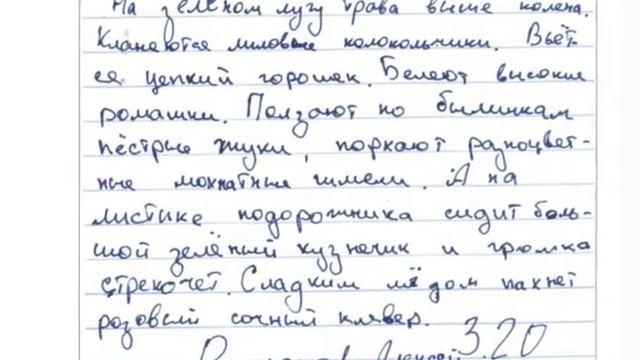 На зелёном лугу трава выше колена.
Кланяются лиловые колокольчики. Вьёт-
ся цепкий горошек. Белеют высокие
ромашки. Ползают по былинкам
пёстрые жуки, порхают разноцвет-
ные мохнатые шмели. А на
листике подорожника сидит боль-
шой зелёный кузнечик и громко
стрекочет. Сладким мёдом пахнет
розовый сочный клевер.
3.20